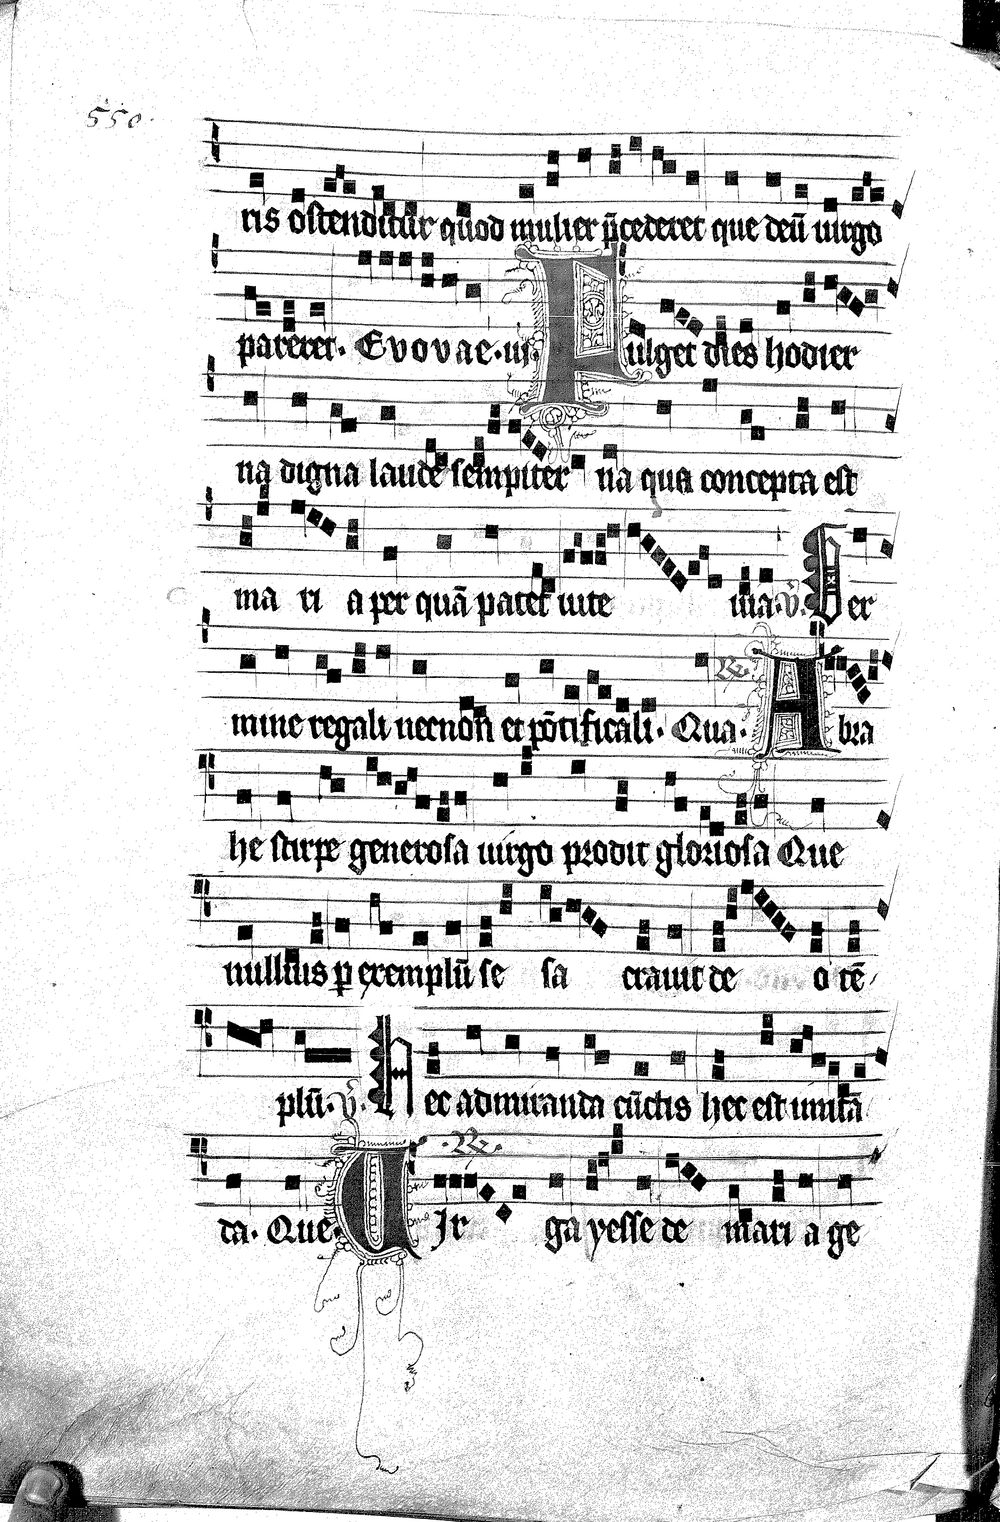 550.
ris ostenditur quod mulier p̄cederet que deū uirgo
pareret. Evovae. iij. Fulget dies hodier
na digna laude sempiter na qua concepta est
ma ri a per quā patet iute uia. v̄. Ger
mine regali necnon et pōtificali. Qua. R. Abra
he stirpe generosa uirgo prodit gloriosa Que
nullius p exemplū se sa crauit de o tē
plū. v̄. Hec admiranda cūctis hec est imitā
da. Que. R. Uir ga yesse de mari a ge